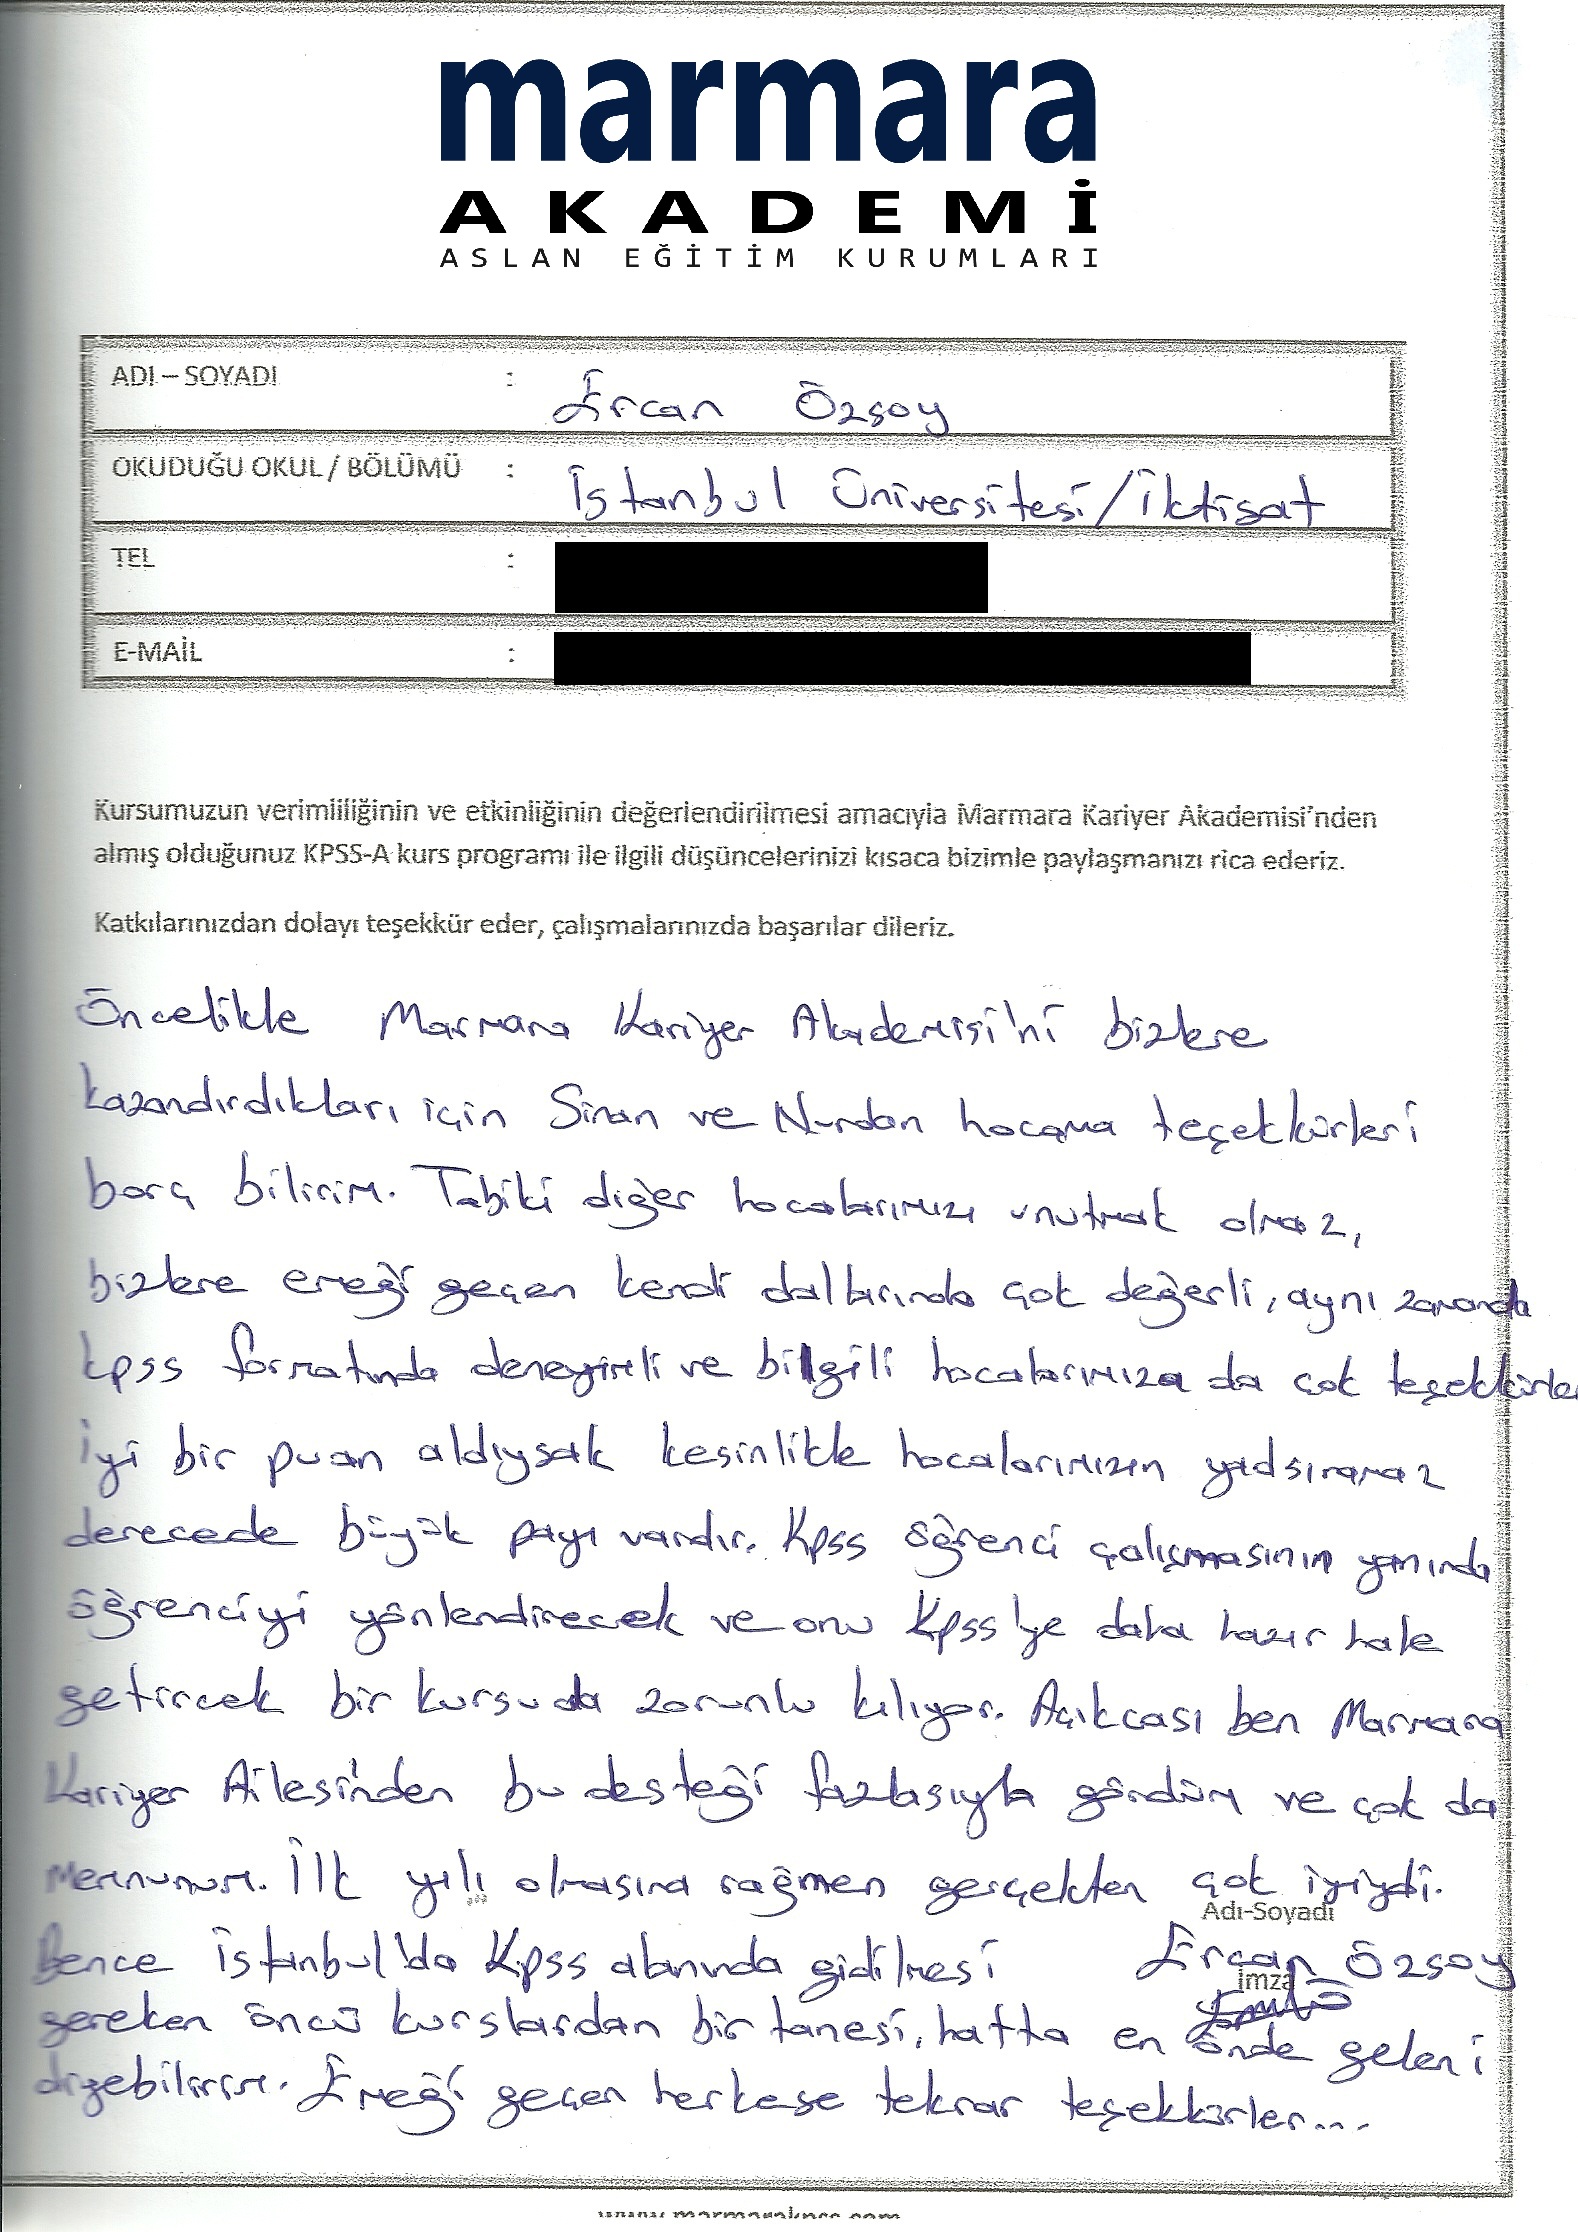 marmara
AKADEMİ
ASLAN EĞİTİM KURUMLARI
ADI – SOYADI : Ercan Özsoy
OKUDUĞU OKUL / BÖLÜMÜ : İstanbul Üniversitesi/İktisat
TEL :
E-MAİL :
Kursumuzun verimliliğinin ve etkinliğinin değerlendirilmesi amacıyla Marmara Kariyer Akademisi'nden
almış olduğunuz KPSS-A kurs programı ile ilgili düşüncelerinizi kısaca bizimle paylaşmanızı rica ederiz.
Katkılarınızdan dolayı teşekkür eder, çalışmalarınızda başarılar dileriz.
Öncelikle Marmara Kariyer Akademisi'ni bizlere
kazandırdıkları için Sinan ve Nurdan hocama teşekkürleri
borç bilirim. Tabiki diğer hocalarımızı unutmak olmaz,
bizlere emeği geçen kendi dallarında çok değerli, aynı zamanda
kpss formatında deneyimli ve bilgili hocalarımıza da çok teşekkürler
İyi bir puan aldıysak kesinlikle hocalarımızın yadsınamaz
derecede büyük payı vardır. Kpss öğrenci çalışmasının yanında
öğrenciyi yönlendirecek ve onu Kpss'ye daha hazır hale
getircek bir kursuda zorunlu kılıyor. Açıkcası ben Marmara
Kariyer Ailesi'nden bu desteği fazlasıyla gördüm ve çok da
memnunum. İlk yılı olmasına rağmen gerçekten çok iyiydi.
Adı-Soyadı
Bence İstanbul'da Kpss alanında gidilmesi Ercan Özsoy
İmza
gereken öncü kurslardan bir tanesi, hatta en önde geleni
diyebilirim. Emeği geçen herkese tekrar teşekkürler...
www.marmarakpss.com